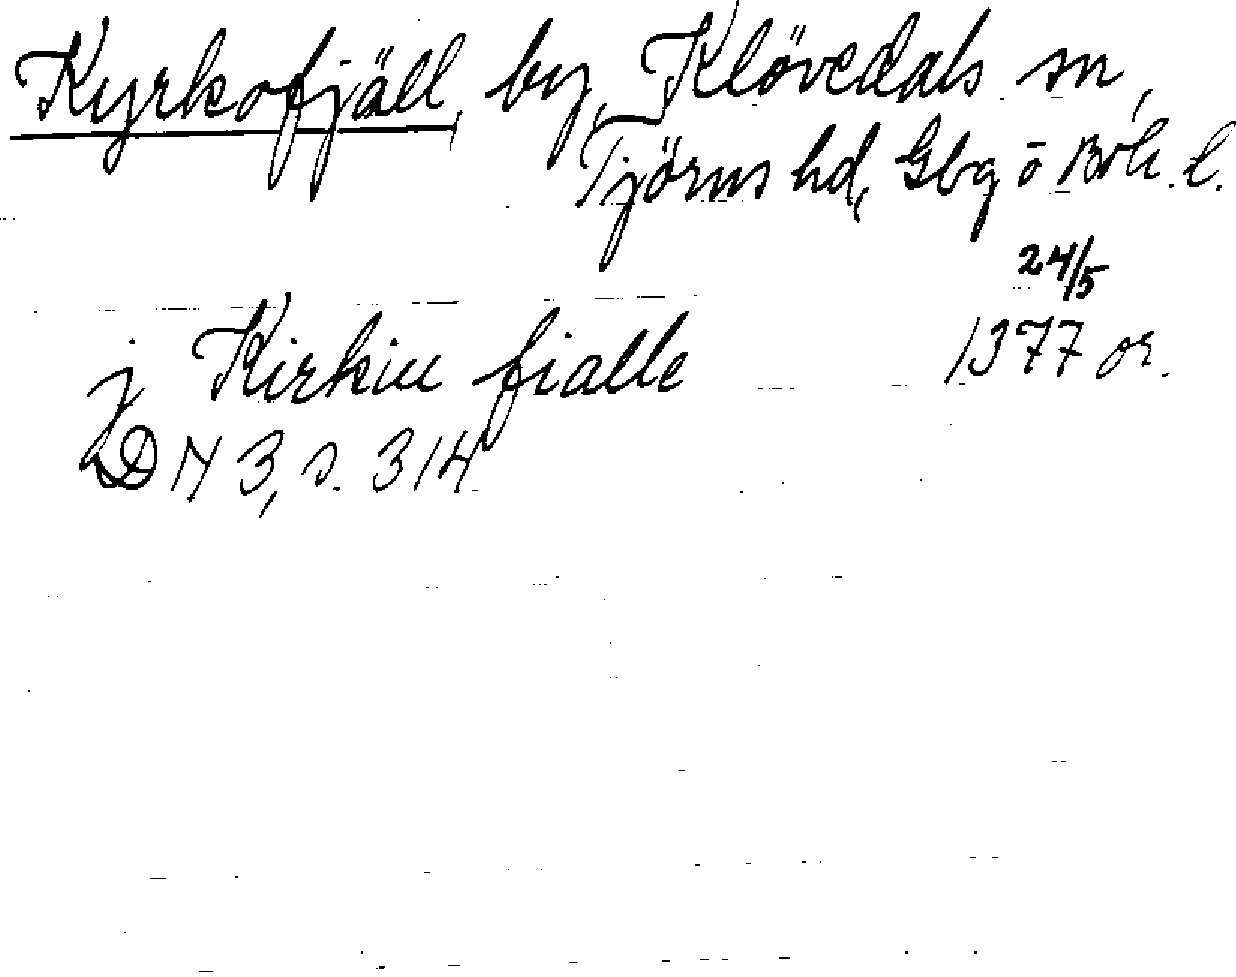 Kyrkofjäll, by, Klövedals sn,
Tjörns hd, Gbg o Boh. l.
24/5
j Kirkiu fialle 1377 or.
DN 3, s. 314